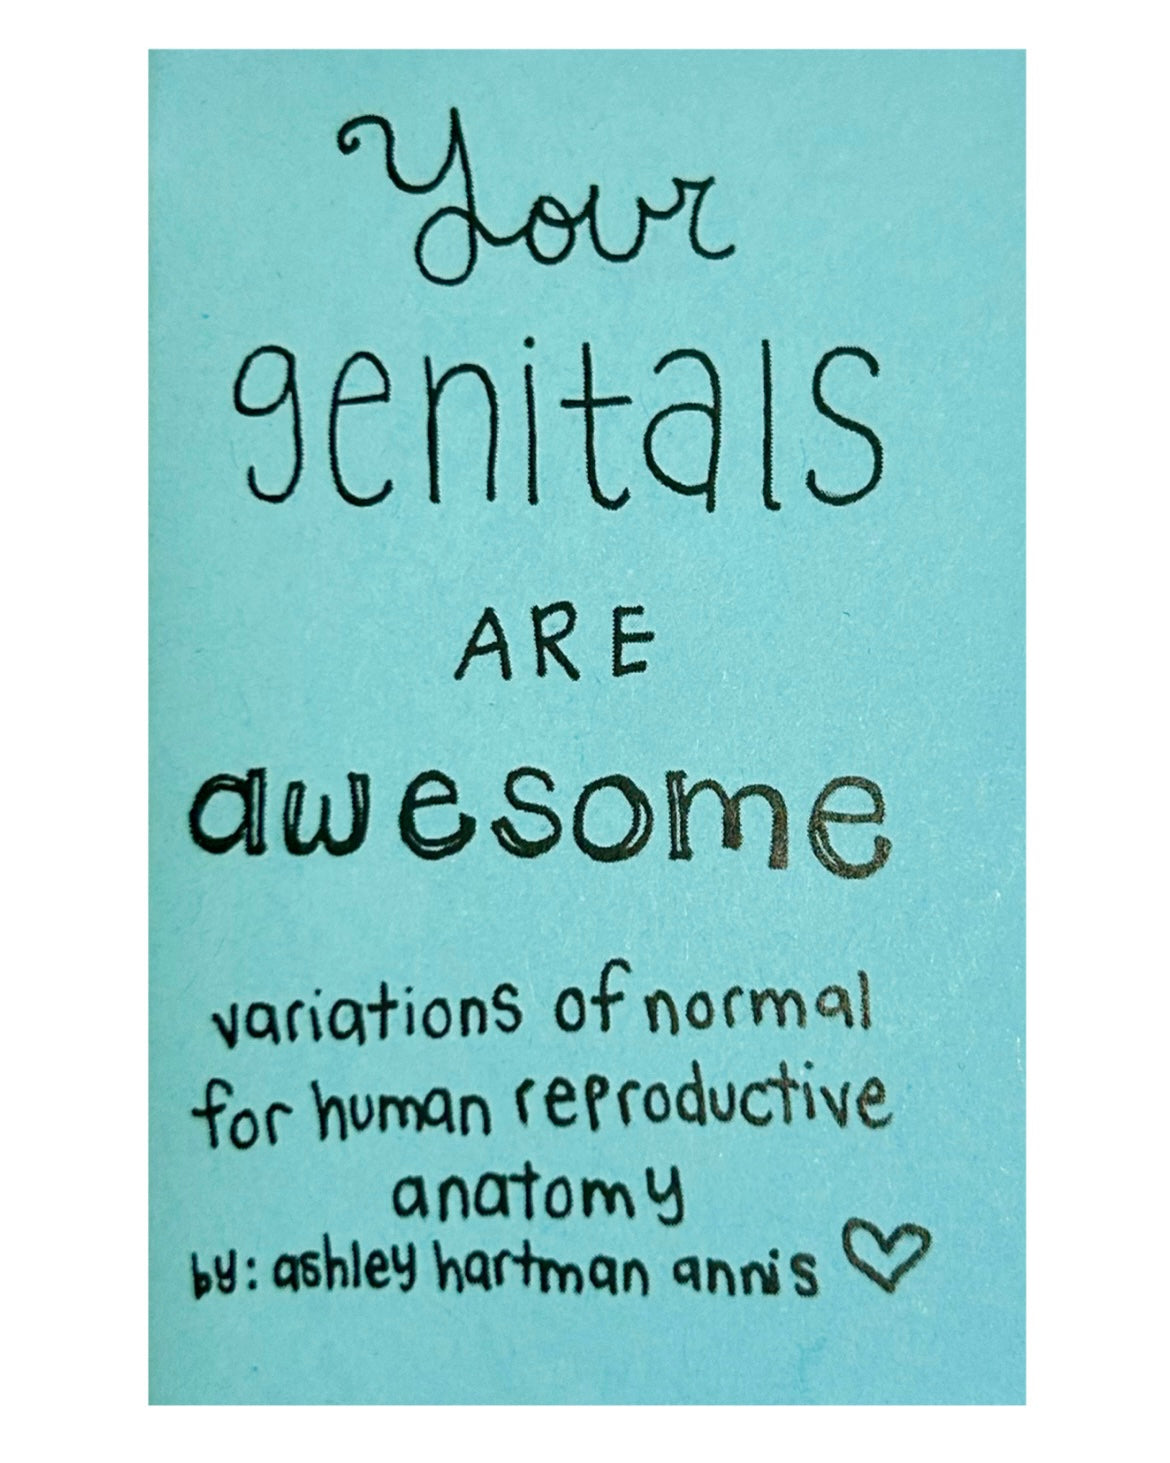 Your
genitals
ARE
awesome
variations of normal
for human reproductive
anatomy
by: ashley hartman annis